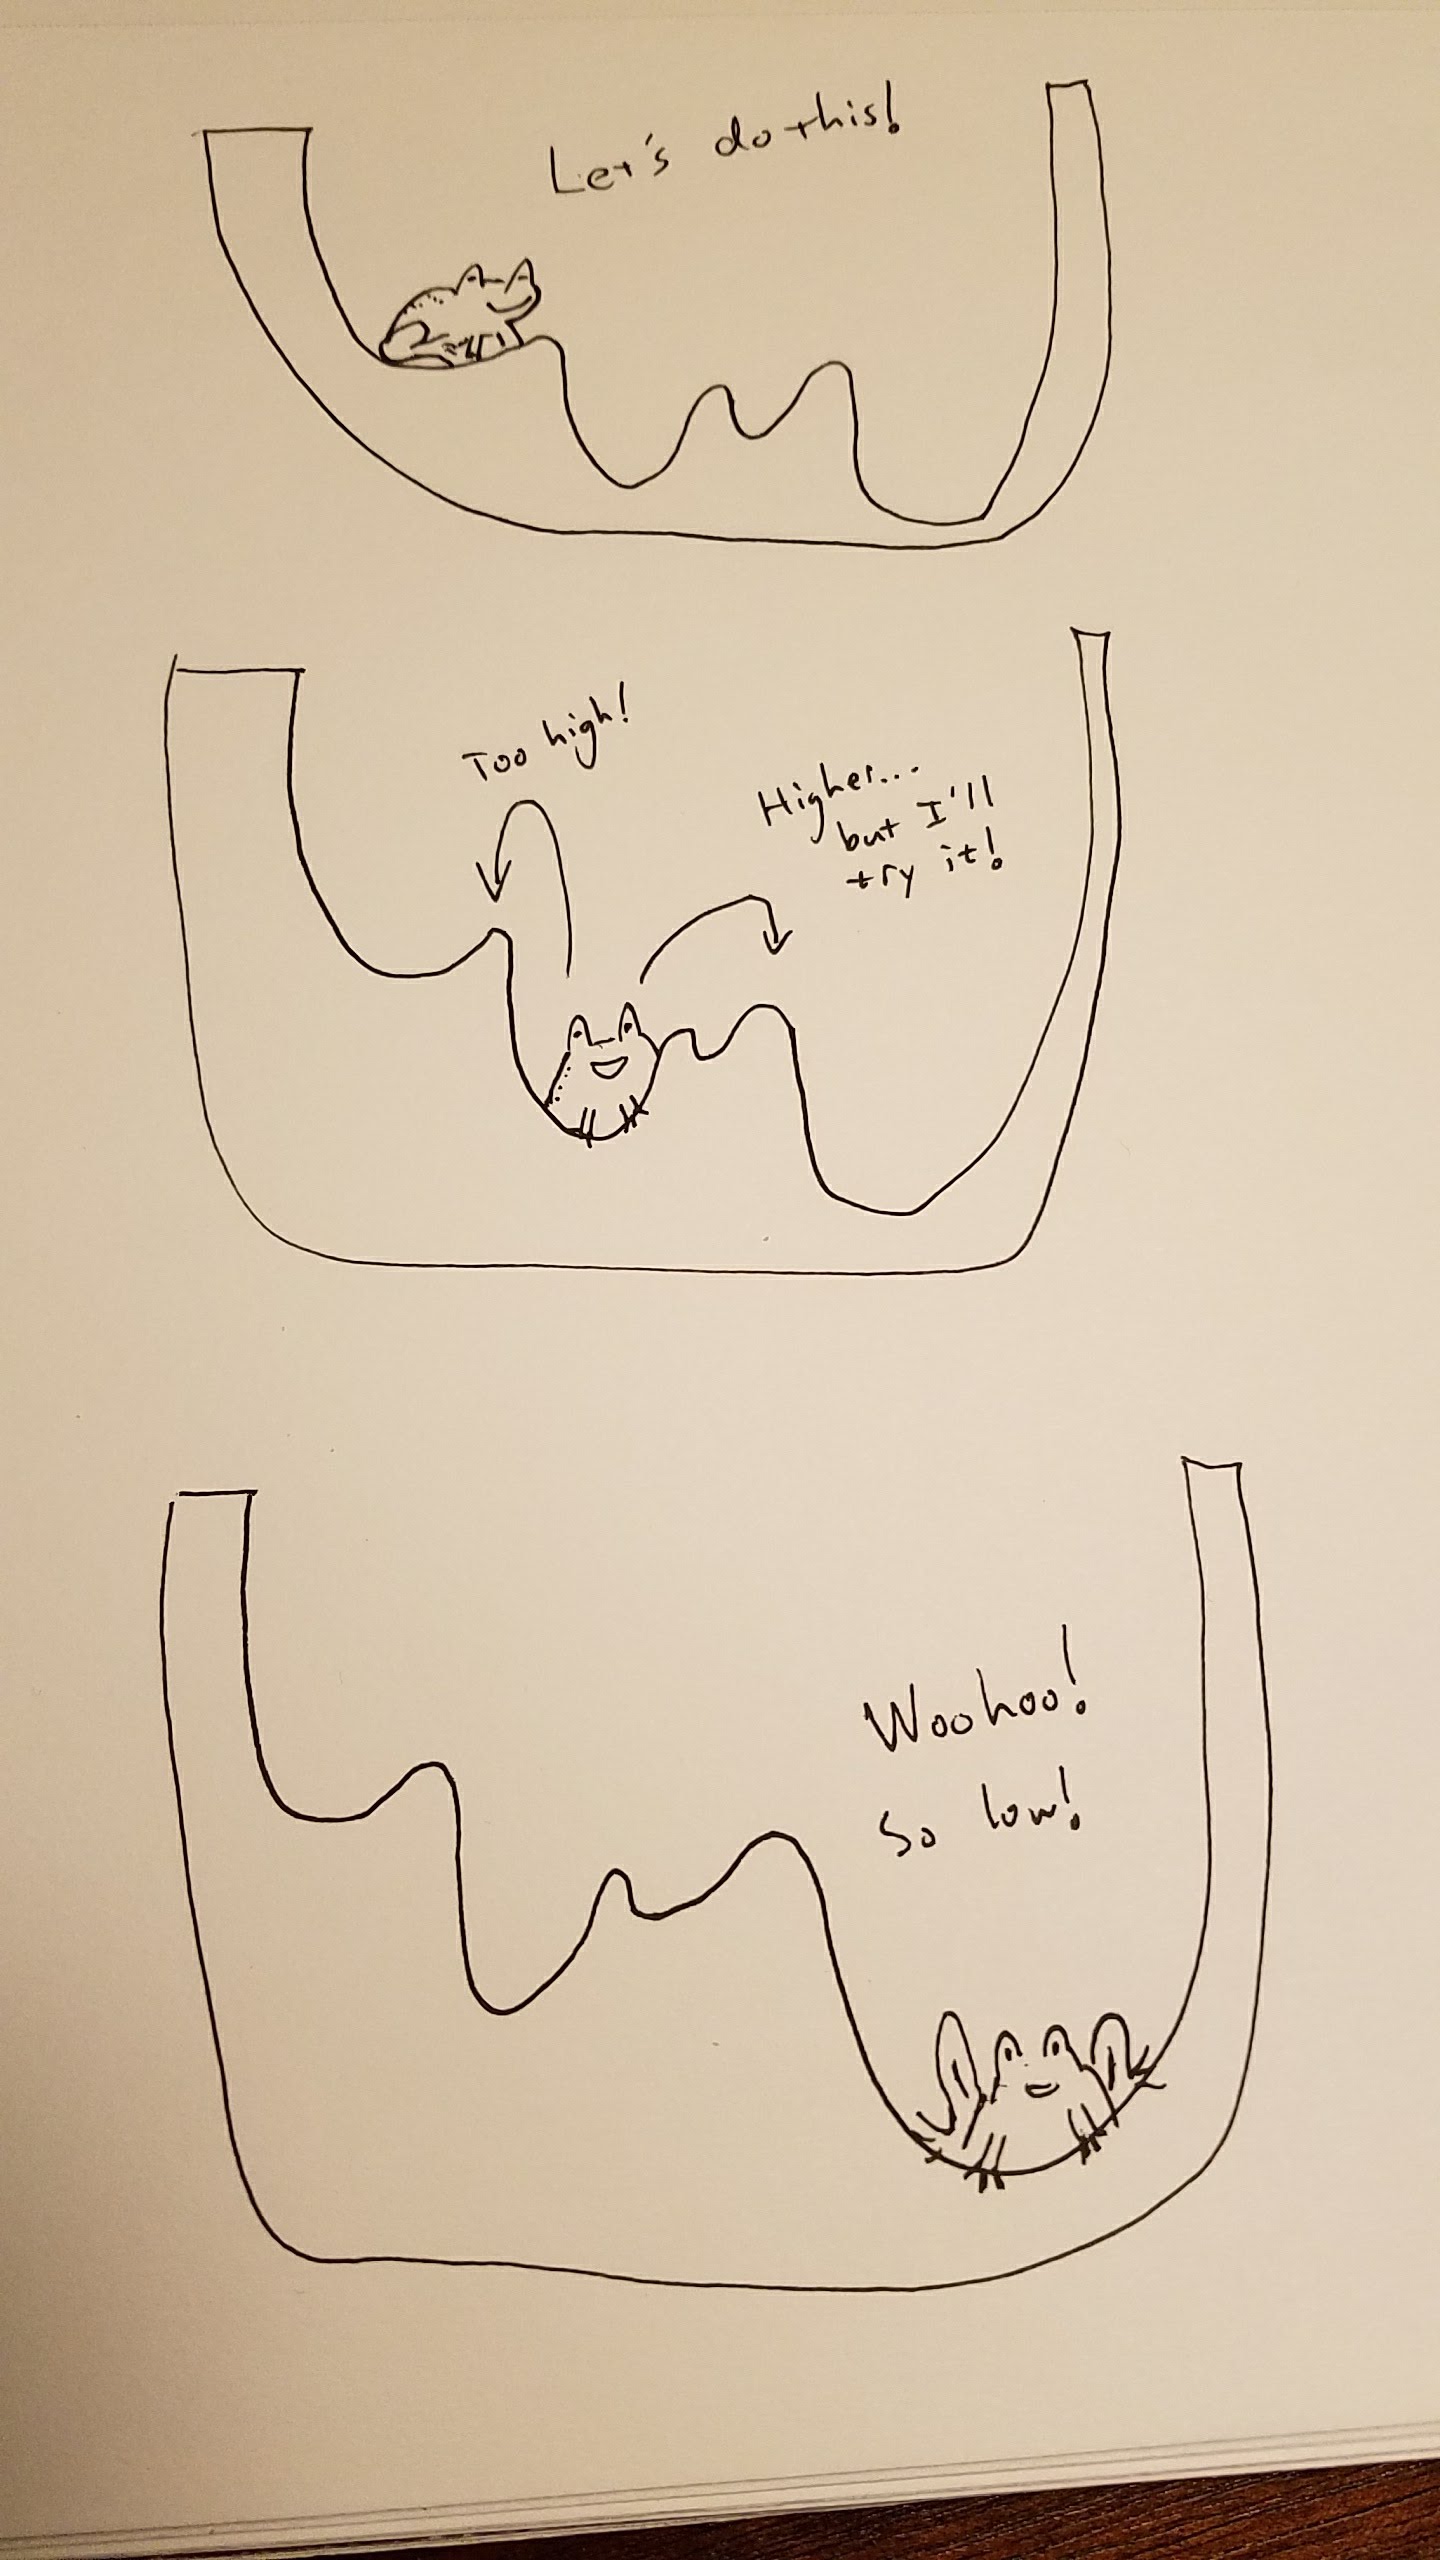 Let's do this!
Too high!
Higher...
but I'll
try it!
Woohoo!
So low!